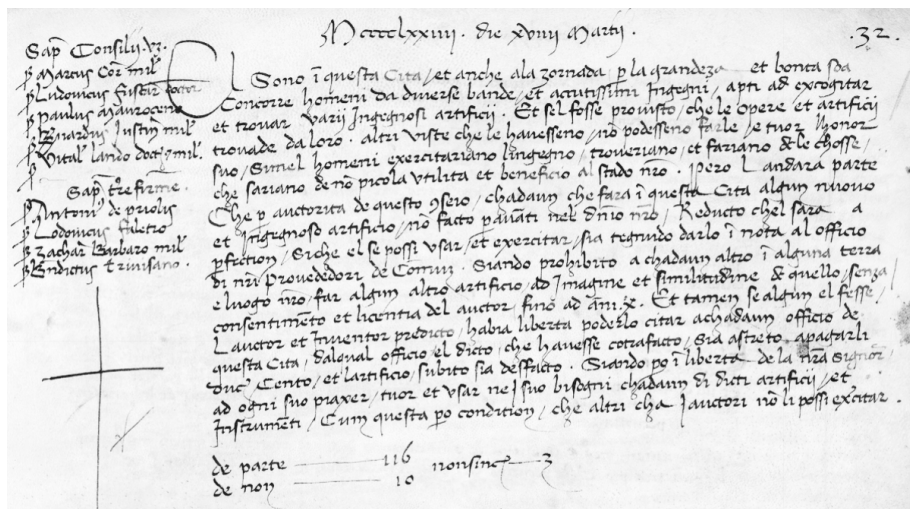 Mcccclxxiiij. die xviiij Martij.
.32.
Sap. Consilij. vz.
Marcus Cor. mil.
Ludovicus Foscar. doctor
Paulus Mauroceno
Bernardus Justin. mil.
Vital. lando doct. mil.
Sap. tr̄e firme.
Antoni. de priolis
Lodovicus
Zachar. Barbaro mil.
Bndictus trivisano.
El Sono ī questa Cita / et anche ala zornada p la grandeza et bonta soa
Concorre homeni da diverse bande / et acutissimi Ingegni, apti ad excogitar
et trovar varij Ingegnosi artificij. Et sel fosse provisto, che le opere et artificij
trovade da loro. altri viste che le havesseno, nō podesseno farle, e tuor l honor
suo, Simel homeni exercitariano lingegno, troveriano, et fariano de le chosse,
che sariano de nō picola utilita et beneficio al stado nr̄o. Pero L andara parte
Che p auctorita de questo 9seio, chadaun che fara ī questa Cita algun nuovo
et Ingegnoso artificio, nō facto p avāti nel dn̄io nr̄o, Reducto chel sara a
pfection, Siche el se possi usar, et exercitar, sia tegnudo darlo ī nota al officio
di nr̄i Provededori de Comun. Siando prohibito a chadaun altro ī alguna terra
e luogo nr̄o, far algun altro artificio, ad Imagine et similitudine de quello, senza
consentimēto et licentia del auctor, fino ad anni .x. Et tamen se algun el fesse,
L auctor et Inventor predicto, habia liberta poderlo citar a chadaun officio de
questa Cita, dal qual officio, el dicto, che havesse cōtrafacto, Sia astreto, a pagarli
Duc. Cento, et l artificio, subito sia desfacto. Siando po ī liberta de la nr̄a Signor.
ad ogni suo piaxer, tuor et usar ne I suo bisogni chadaun di dicti artificij, et
Instrumēti, Cum questa po condition, che altri cha I auctori nō li possi exercitar.
de parte 116 non sinc. 3
de non 10